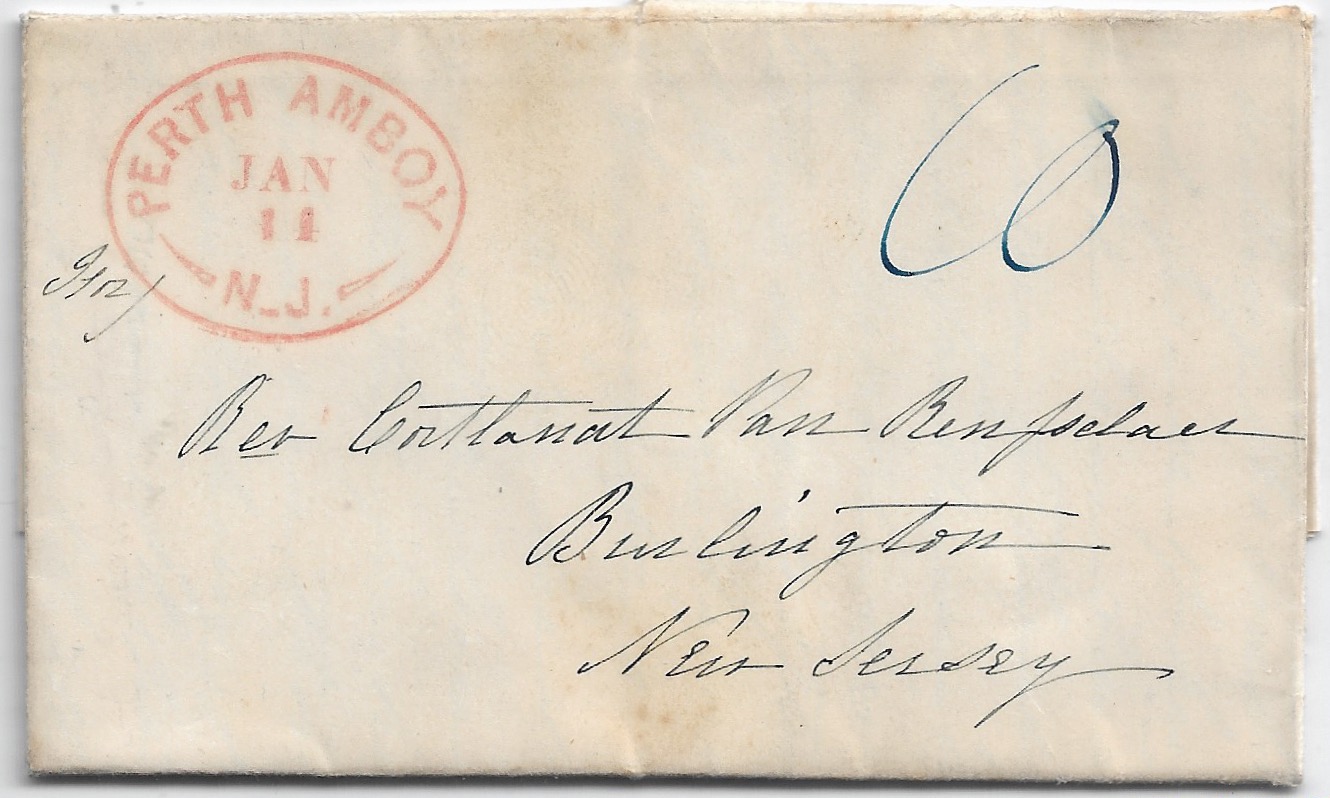 PERTH AMBOY
JAN
11
N.J.
10
Rev Cortlandt Van Rensselaer
Burlington
New Jersey